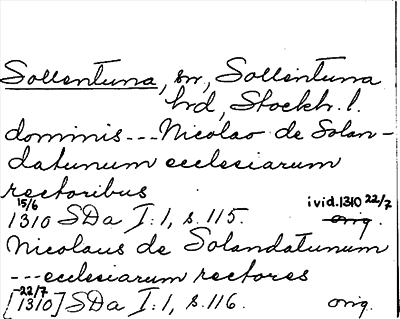 Sollentuna, sn, Sollentuna
hrd, Stockh. l.
dominis --- Nicolao de Solan-
datunum ecclesiarum
rectoribus
15/6 i vid. 1310 22/7
1310 SDa I:1, s. 115. orig.
Nicolaus de Solandatunum
--- ecclesiarum rectores
-22/7
[1310] SDa I:1, s. 116. orig.